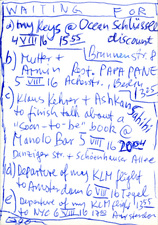 WAITING FOR
a) my keys @ Ocean Schlüssel
4 VIII 16 1355 discount
Brunnenstr 8
b) Mutter +
Armin Rest. PAPA PANE
5 VIII 16 Ackerstr.,
c) Klaus Kehrer + Ashkan Sahihi
to finish talk about a
"soon-to-be" book @
Manolo Bar 5 VIII 16
Danziger Str + Schönhauser Allee
d) departure of my KLM flight
to Amsterdam 6 VIII 16 Tegel
e) departure of my KLM flight
to NYC 6 VIII 16 Amsterdam